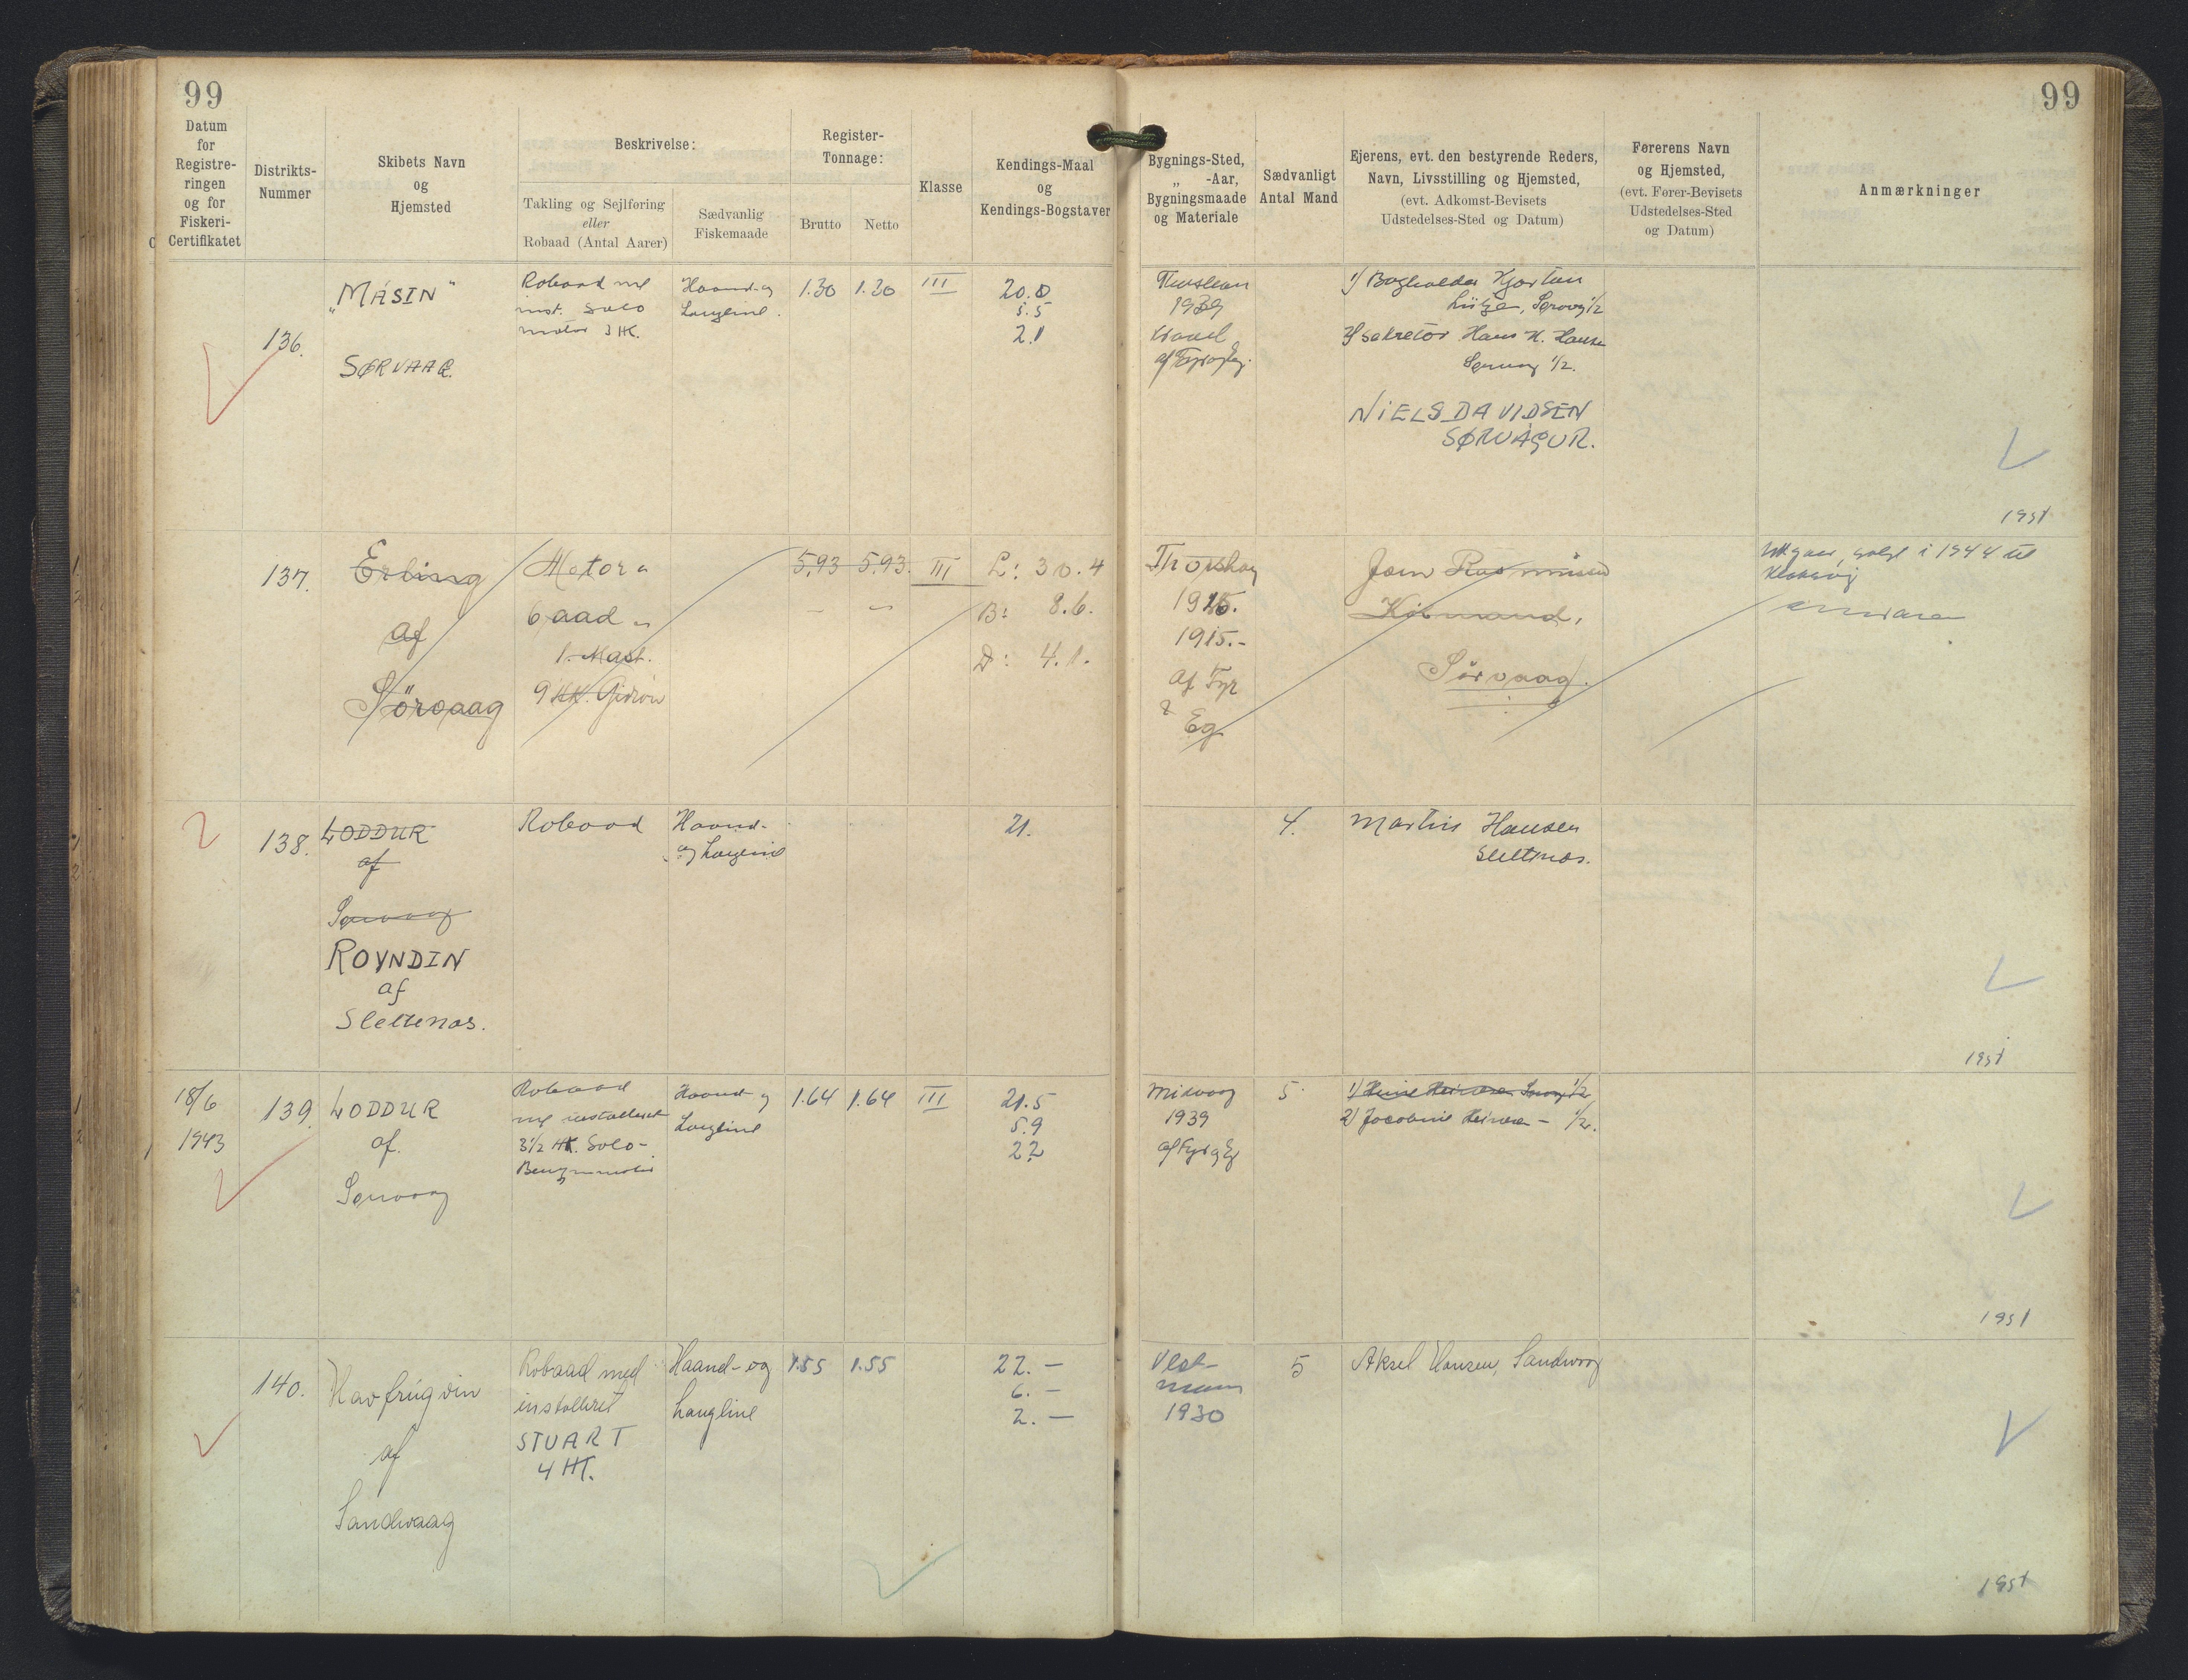 99
99
Datum
for
Registre-
ringen
og for
Fiskeri-
Certifikatet
Distrikts-
Nummer
Skibets Navn
og
Hjemsted
Beskrivelse:
Takling og Sejlføring
eller
Robaad (Antal Aarer)
Sædvanlig
Fiskemaade
Register-
Tonnage:
Brutto
Netto
Klasse
Kendings-Maal
og
Kendings-Bogstaver
Bygnings-Sted,
„ -Aar,
Bygningsmaade
og Materiale
Sædvanligt
Antal Mand
Ejerens, evt. den bestyrende Reders,
Navn, Livsstilling og Hjemsted,
(evt. Adkomst-Bevisets
Udstedelses-Sted og Datum)
Førerens Navn
og Hjemsted,
(evt. Fører-Bevisets
Udstedelses-Sted
og Datum)
Anmærkninger
136.
„MÁSIN"
SØRVAAG.
Robaad m/
inst. Solo
motor 3 HK.
Haand- og
Langline.
1.30
1.30
III
20.0
5.5
2.1
1939
af Fyr og Eg.
1) Bogholder Kjartan
Lütze, Sørvaag 1/2
2) Sekretær Hans K. Hansen
Sørvaag 1/2.
NIELS DAVIDSEN
SØRVÁGUR.
1951
137.
Erling
af
Sörvaag
Motor
baad
1. Mast.
9 HK.
5,93
5.93.
III
L: 30.4
B: 8.6.
D: 4.1.
Thorshavn
1915.-
Af Fyr
&
Eg
Rasmussen
Købmand,
Sørvaag.
solgt i 1944 til
Klaksvig
138.
LODDUR
af
Sørvaag
ROYNDIN
af
Slettenæs.
Robaad
Haand-
og Langline
21.
4.
Martin Hansen
Slettnæs.
1951
18/6
1943
139.
LODDUR
af.
Sørvaag
Robaad
m/ installeret
3 1/2 HK. Solo-
Benzinmotor
Haand- og
Langline
1.64
1.64
III
21.5
5.9
2.2
Midvaag
1939
af Fyr og Eg
5.
1) Heinesen Sørvaag 1/2
2) Heinesen - 1/2.
1951
140.
Havfrúgvin
af
Sandvaag
Robaad med
installeret
STUART
4 HK.
Haand- og
Langline
1.55
1.55
22. —
6. —
2. —
Vest-
mann
1930
5
Aksel Hansen, Sandvaag
1951